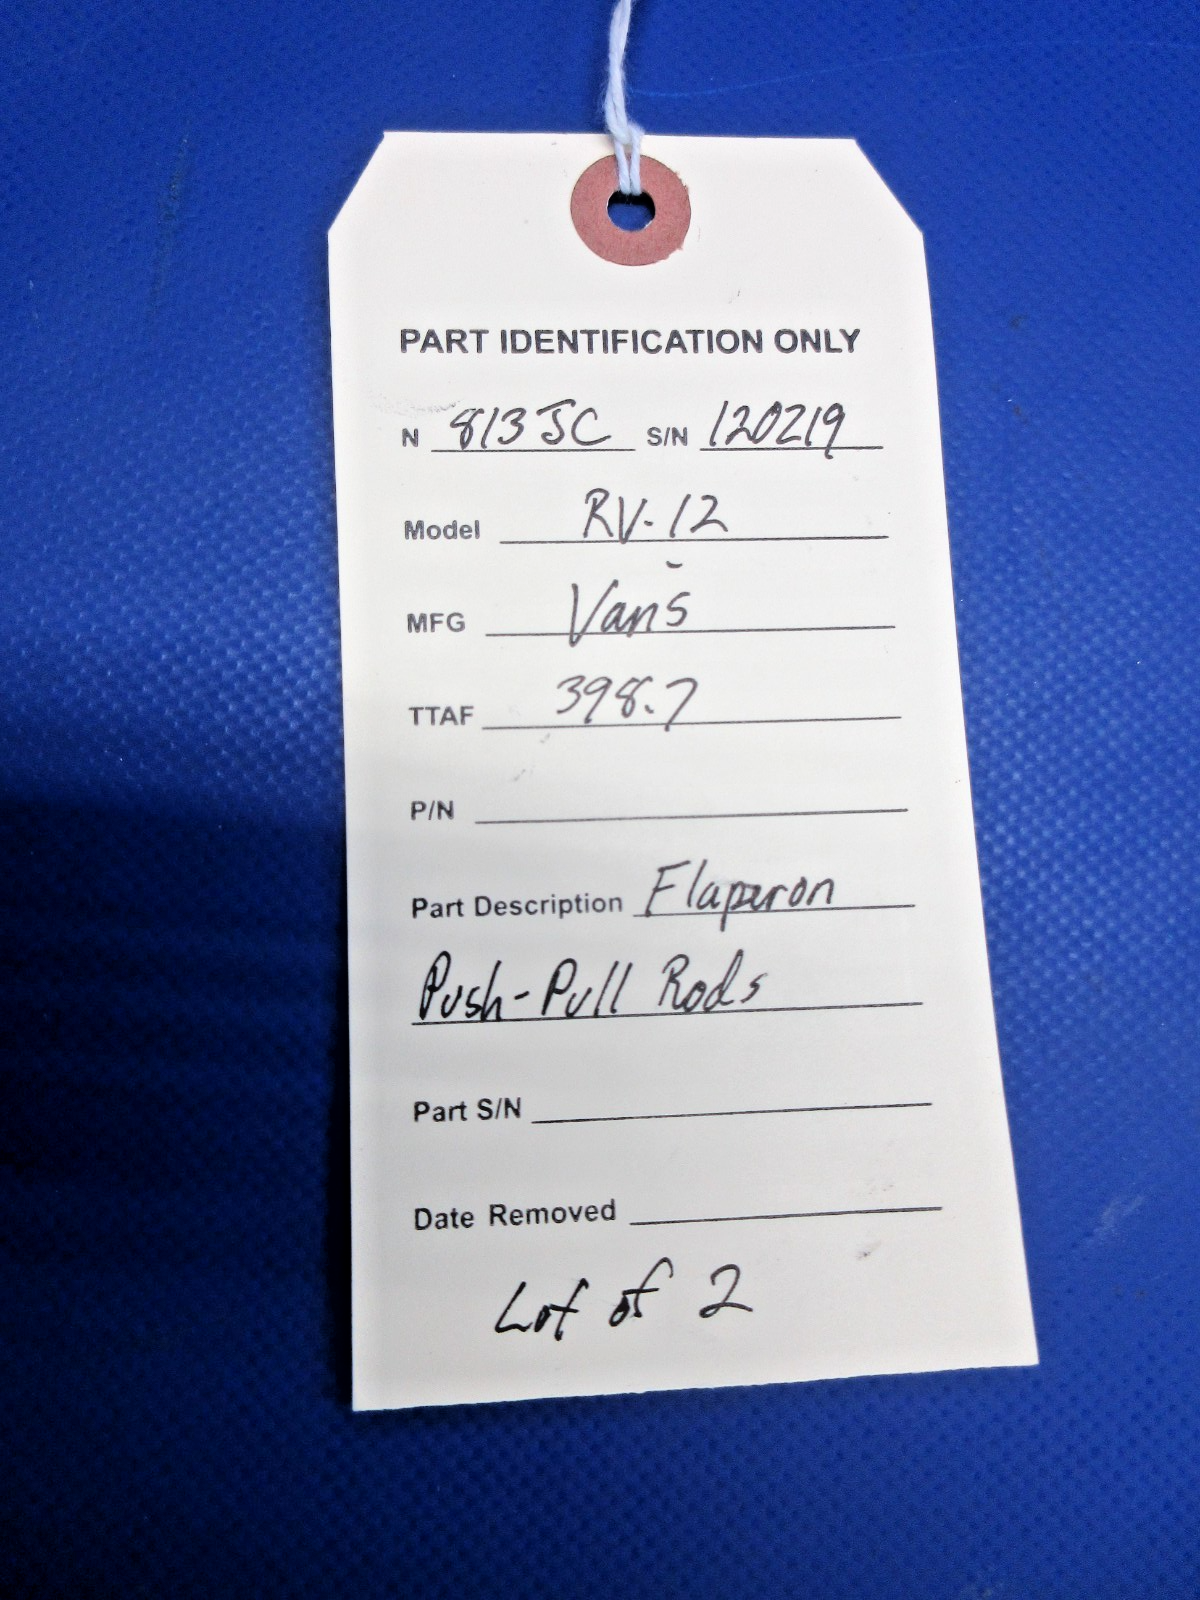 PART IDENTIFICATION ONLY
N 813JC S/N 120219
Model RV-12
MFG Van's
TTAF 398.7
P/N
Part Description Flaperon
Push-Pull Rods
Part S/N
Date Removed
Lot of 2